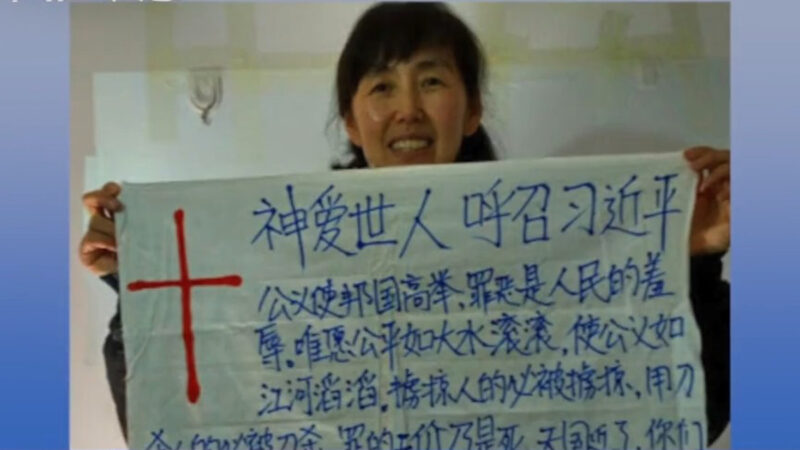 神爱世人 呼召习近平
公义使邦国高举,罪恶是人民的羞
辱。唯愿公平如大水滚滚,使公义如
江河滔滔。掳掠人的必被掳掠,用刀
杀人的必被刀杀,罪的工价乃是死,天国近了,你们